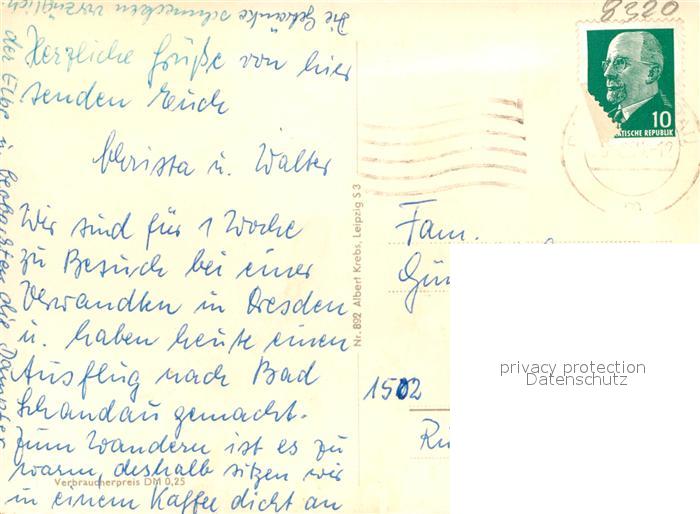 Herzliche Grüße von hier
senden Euch
Christa u. Walter
Wir sind für 1 Woche
zu Besuch bei einer
Verwandten in Dresden
u. haben heute einen
Ausflug nach Bad
Schandau gemacht.
Zum Wandern ist es zu
warm, deshalb sitzen wir
in einem Kaffee dicht an
der Elbe u. beobachten die Dampfer
Die Getränke schmecken vorzüglich.
Verbraucherpreis DM 0,25
Nr. 892 Albert Krebs, Leipzig S 3
8320
10
ATISCHE REPUBLIK
Fam.
Gün
1502
privacy protection
Datenschutz